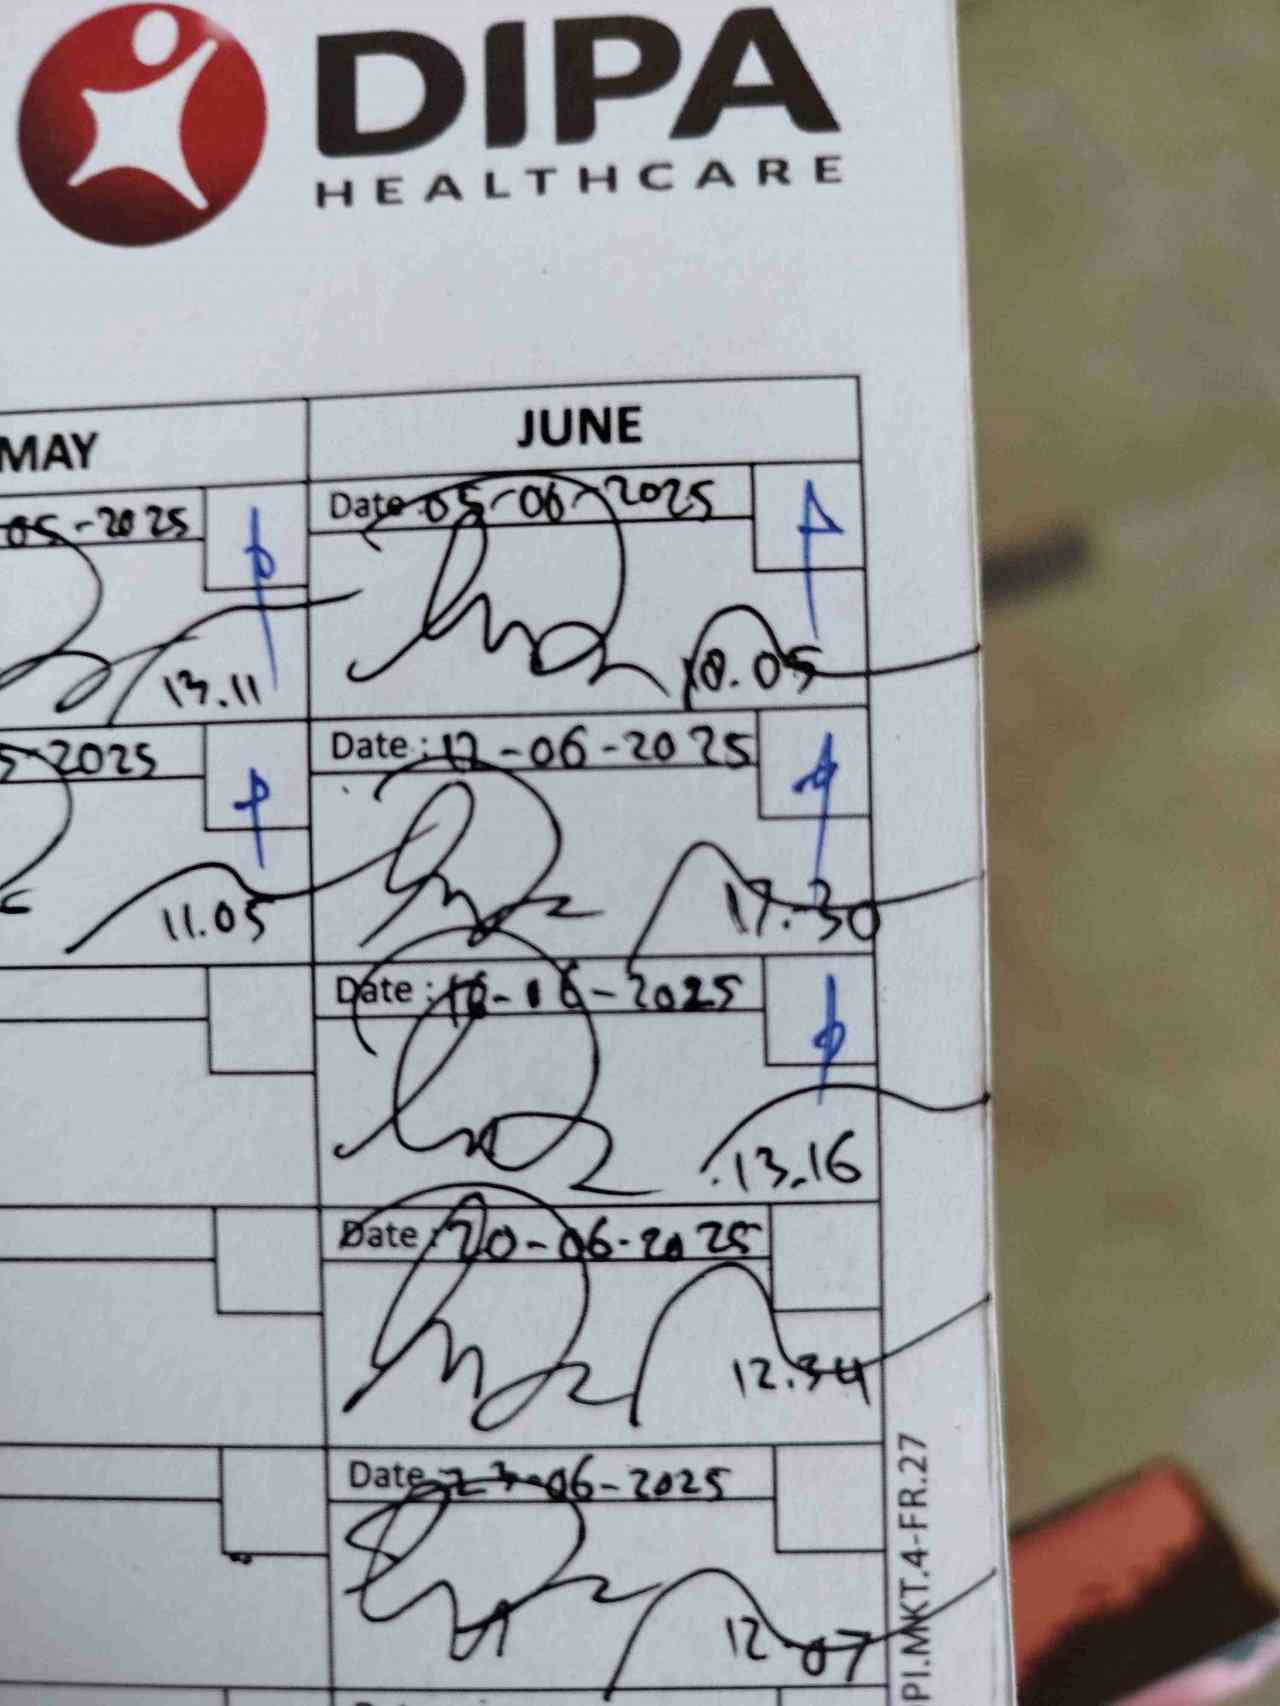 DIPA
HEALTHCARE
MAY
JUNE
05-2025
Date 05-06-2025
13.11
18.05
5-2025
Date : 12-06-2025
11.05
17.30
Date : 16-16-2025
13.16
Date : 20-06-2025
12.34
Date 23-06-2025
12.07
PI.MKT.4-FR.27
Date :